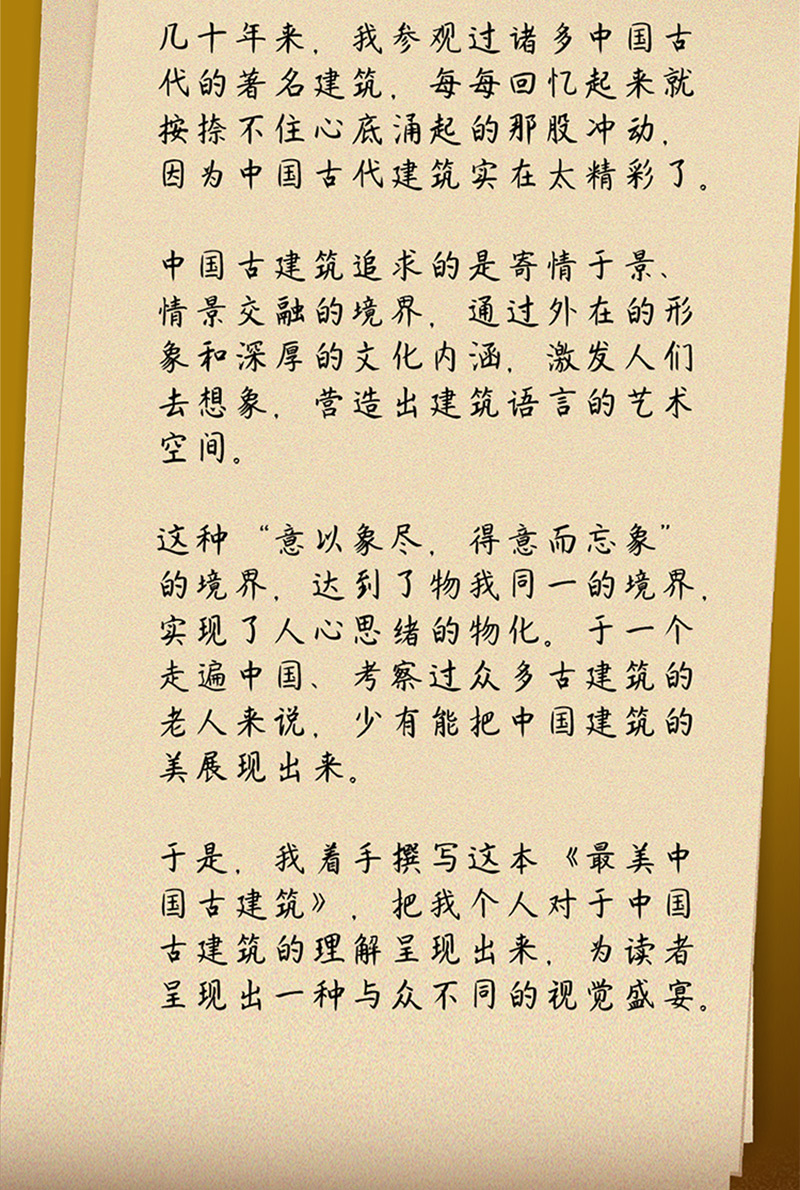 几十年来，我参观过诸多中国古
代的著名建筑，每每回忆起来就
按捺不住心底涌起的那股冲动，
因为中国古代建筑实在太精彩了。
中国古建筑追求的是寄情于景、
情景交融的境界，通过外在的形
象和深厚的文化内涵，激发人们
去想象，营造出建筑语言的艺术
空间。
这种“意以象尽，得意而忘象”
的境界，达到了物我同一的境界，
实现了人心思绪的物化。于一个
走遍中国、考察过众多古建筑的
老人来说，少有能把中国建筑的
美展现出来。
于是，我着手撰写这本《最美中
国古建筑》，把我个人对于中国
古建筑的理解呈现出来，为读者
呈现出一种与众不同的视觉盛宴。